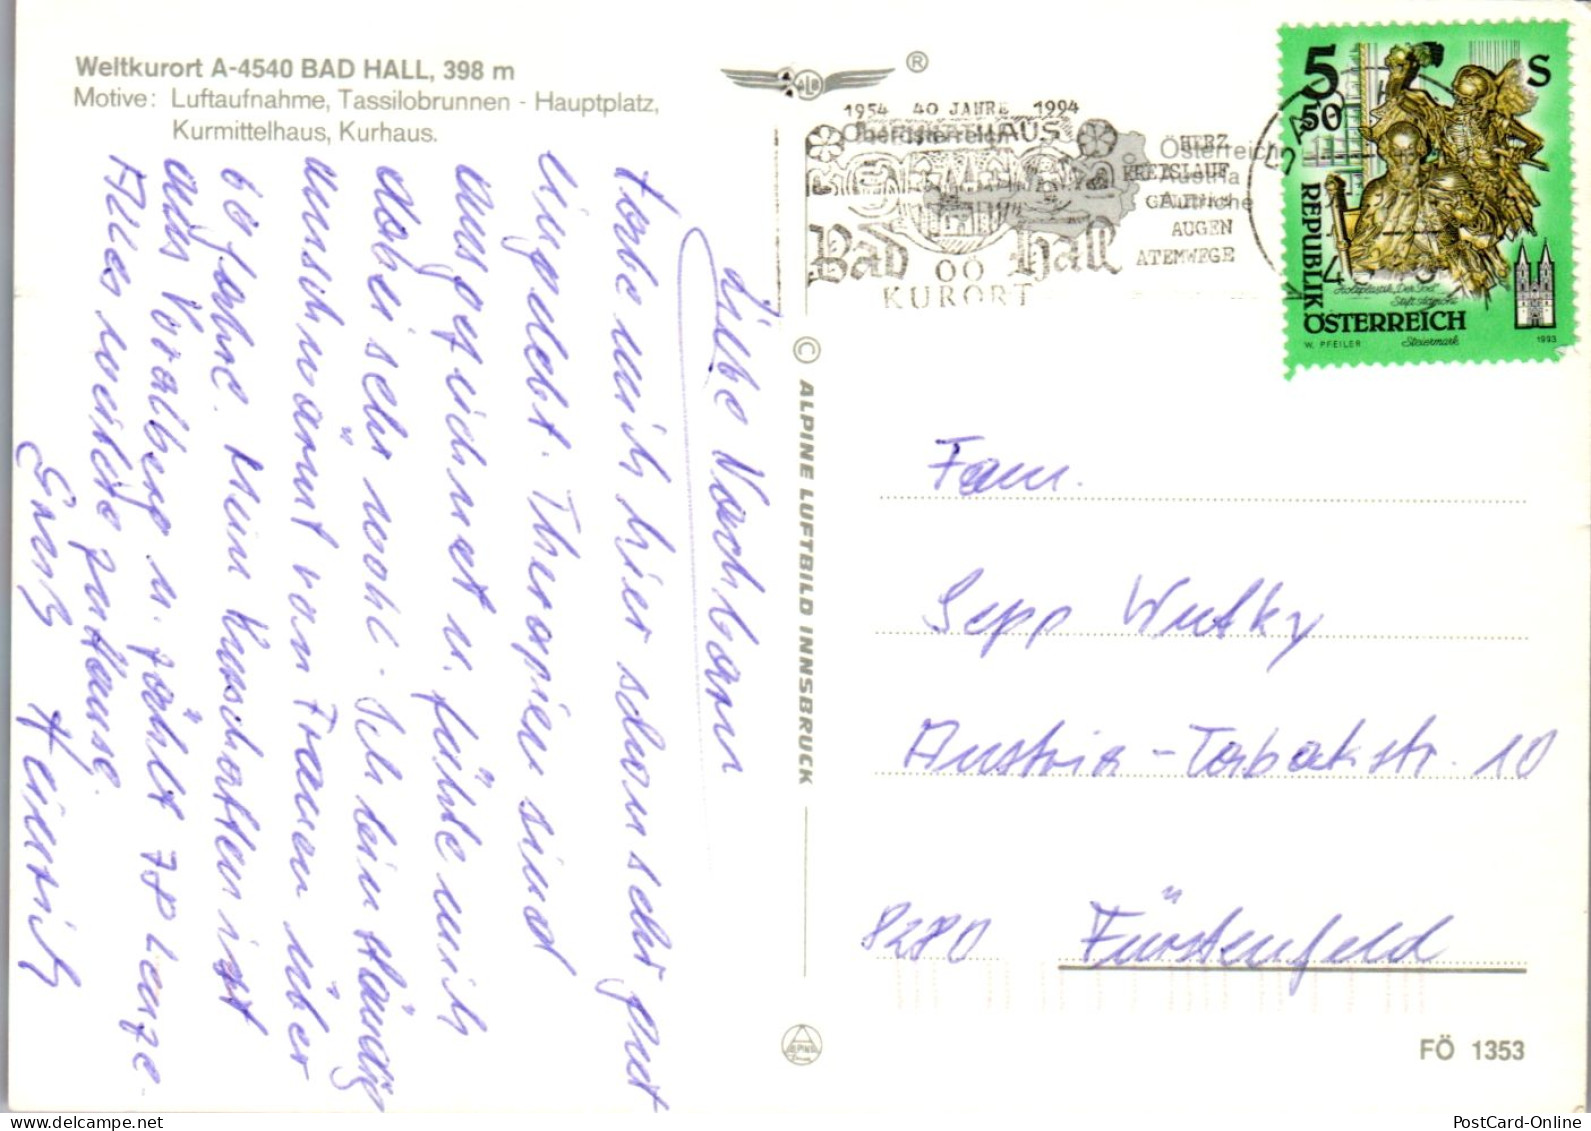 Weltkurort A-4540 BAD HALL, 398 m
Motive: Luftaufnahme, Tassilobrunnen - Hauptplatz,
Kurmittelhaus, Kurhaus.
ALB
®
1954 40 JAHRE 1994
Oberösterreich
HAUS
Bad Hall
OÖ
KURORT
HERZ
KREISLAUF
AUGEN
ATEMWEGE
Österreich
Austria
Autriche
5 50 S
REPUBLIK
ÖSTERREICH
W. PFEILER
Steiermark
1993
© ALPINE LUFTBILD INNSBRUCK
Liebe Nachbarn
habe mich hier schon sehr gut
eingelebt. Therapien sind
ausgezeichnet u. fühle mich
dabei sehr wohl. Ich bin ständig
umschwärmt von Frauen über
60 Jahre. Mein Kurschatten ist
aus Voralberg u. zählt 78 Lenze.
Alles weitere zu Hause.
Heinrich
Fam.
Sepp Wutky
Austria-Tabakstr. 10
8280 Fürstenfeld
FÖ 1353
PostCard-Online